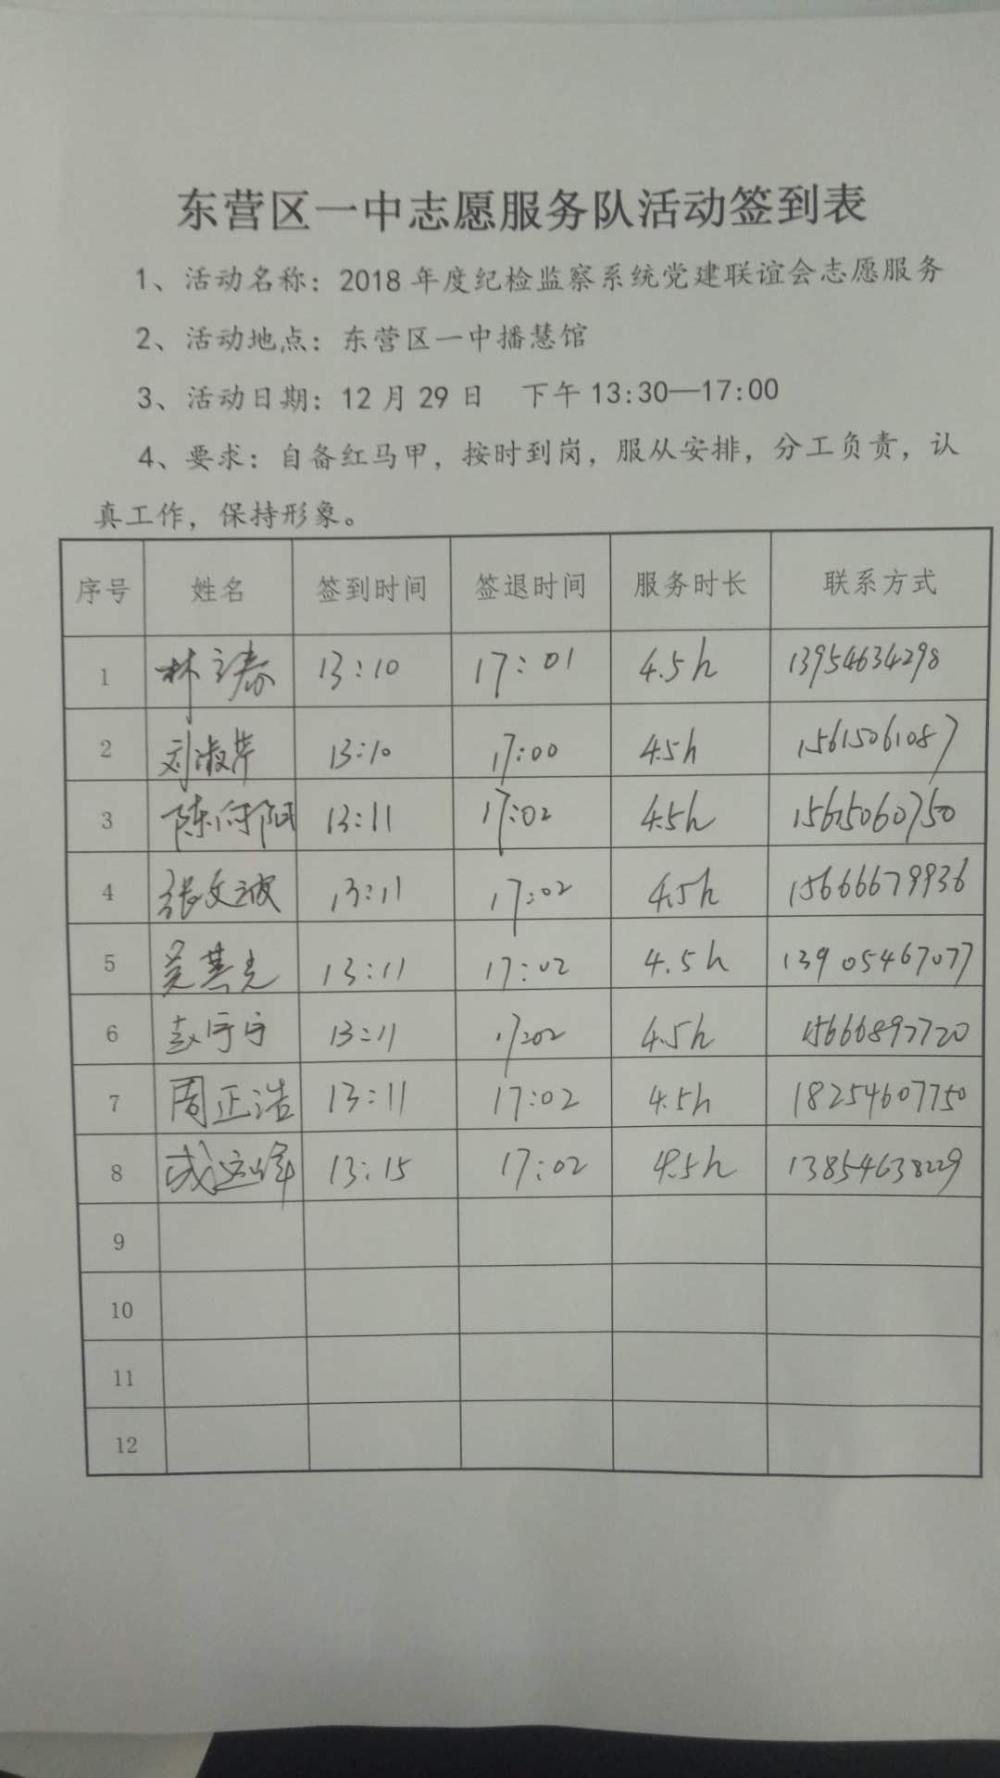 东营区一中志愿服务队活动签到表
1、活动名称：2018年度纪检监察系统党建联谊会志愿服务
2、活动地点：东营区一中播慧馆
3、活动日期：12月29日 下午13:30—17:00
4、要求：自备红马甲，按时到岗，服从安排，分工负责，认
真工作，保持形象。
序号 姓名 签到时间 签退时间 服务时长 联系方式
1 林 13:10 17:01 4.5h 13954634298
2 刘淑芹 13:10 17:00 4.5h 15615061087
3 陈向阳 13:11 17:02 4.5h 15615060750
4 张文波 13:11 17:02 4.5h 15666679936
5 吴其光 13:11 17:02 4.5h 13905467077
6 赵宁宁 13:11 17:02 4.5h 15666897720
7 周正浩 13:11 17:02 4.5h 18254607750
8 成 13:15 17:02 4.5h 13854638229
9
10
11
12